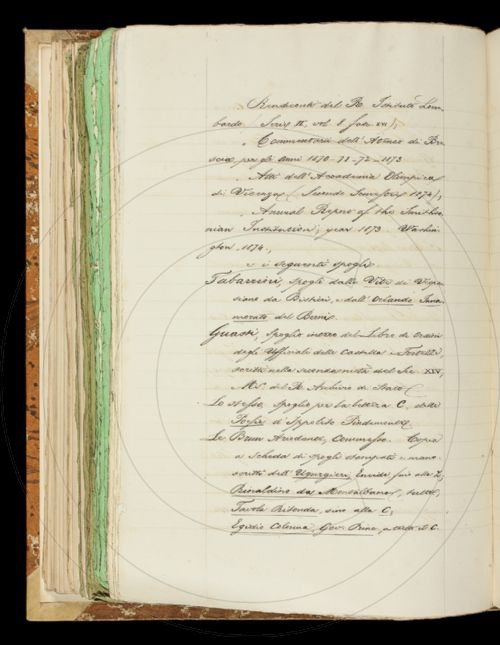 Rendiconti del R. Istituto Lom-
bardo (Serie II, vol. 8. fasc. VII);
Commentari dell'Ateneo di Bre-
scia per gli Anni 1870-71-72-1873
Atti dell'Accademia Olimpica
di Vicenza (Secondo Semestre 1874);
Annual Report of the Smithso-
nian Institution; year 1873 Washin-
gton 1874,
e i seguenti spogli
Tabarrini, spogli dalle Vite di Vespa-
siano da Bisticci, e dall'Orlando Inna-
morato del Berni.
Guasti, Spoglio intero del Libro di Ordini
degli Uffiziali delle Castella e Fortezze,
scritti nella seconda metà del Sec. XIV,
Ms. del R. Archivio di Stato
Lo stesso, Spoglio per la lettera C, delle
Poesie d'Ippolito Pindemonte.
Le Brun Aridante, Commesso. Copia
a scheda di spogli stampati e mano-
scritti dell'Ugurgieri, Eneide fino alla
Rinaldino da Montalbano, tutto,
Tavola Ritonda, sino alla C,
Egidio Colonna, Gov. Princ., a tutto il C.